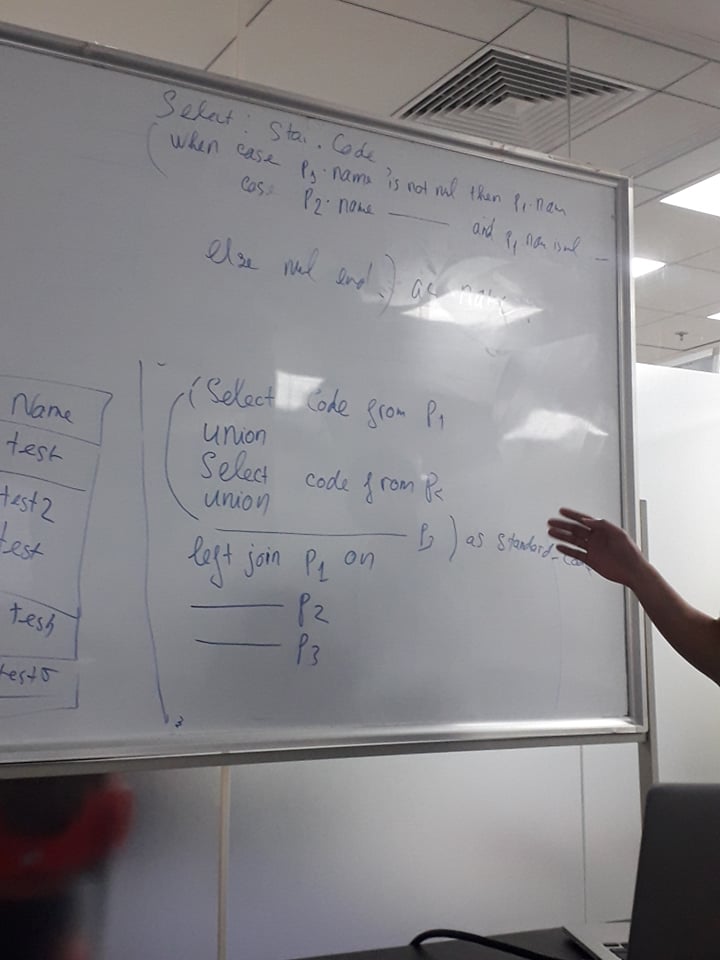 Select : Sta . Code
( When case P1.name is not nul then P1.nam
case P2.name ____ and P1 nam is nul __
else nul end ) as name
Name
test
test2
test
test4
test5
( (Select Code from P1
union
Select code from P2
union
____ P3 ) as Standard_Code
left join P1 on
____ P2
____ P3